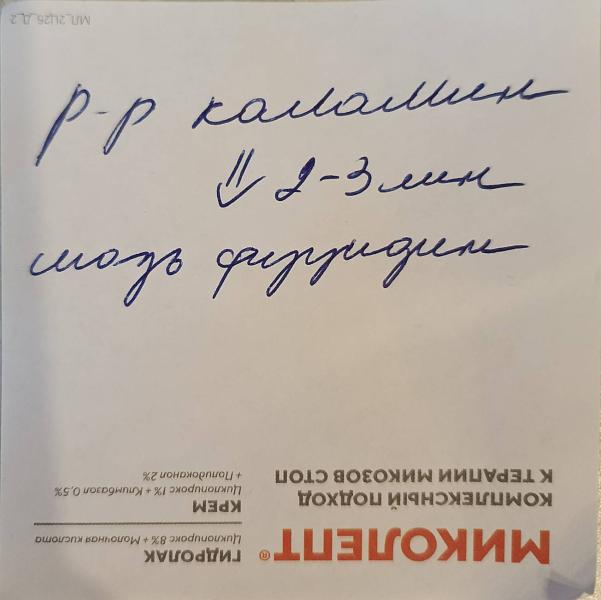 р-р каламин
⇓ 2-3 мин
мазь фузидин
МИКОЛЕПТ®
КОМПЛЕКСНЫЙ ПОДХОД
К ТЕРАПИИ МИКОЗОВ СТОП
ГИДРОЛАК
Циклопирокс 8% + Молочная кислота
КРЕМ
Циклопирокс 1% + Климбазол 0,5%
+ Полидоканол 2%